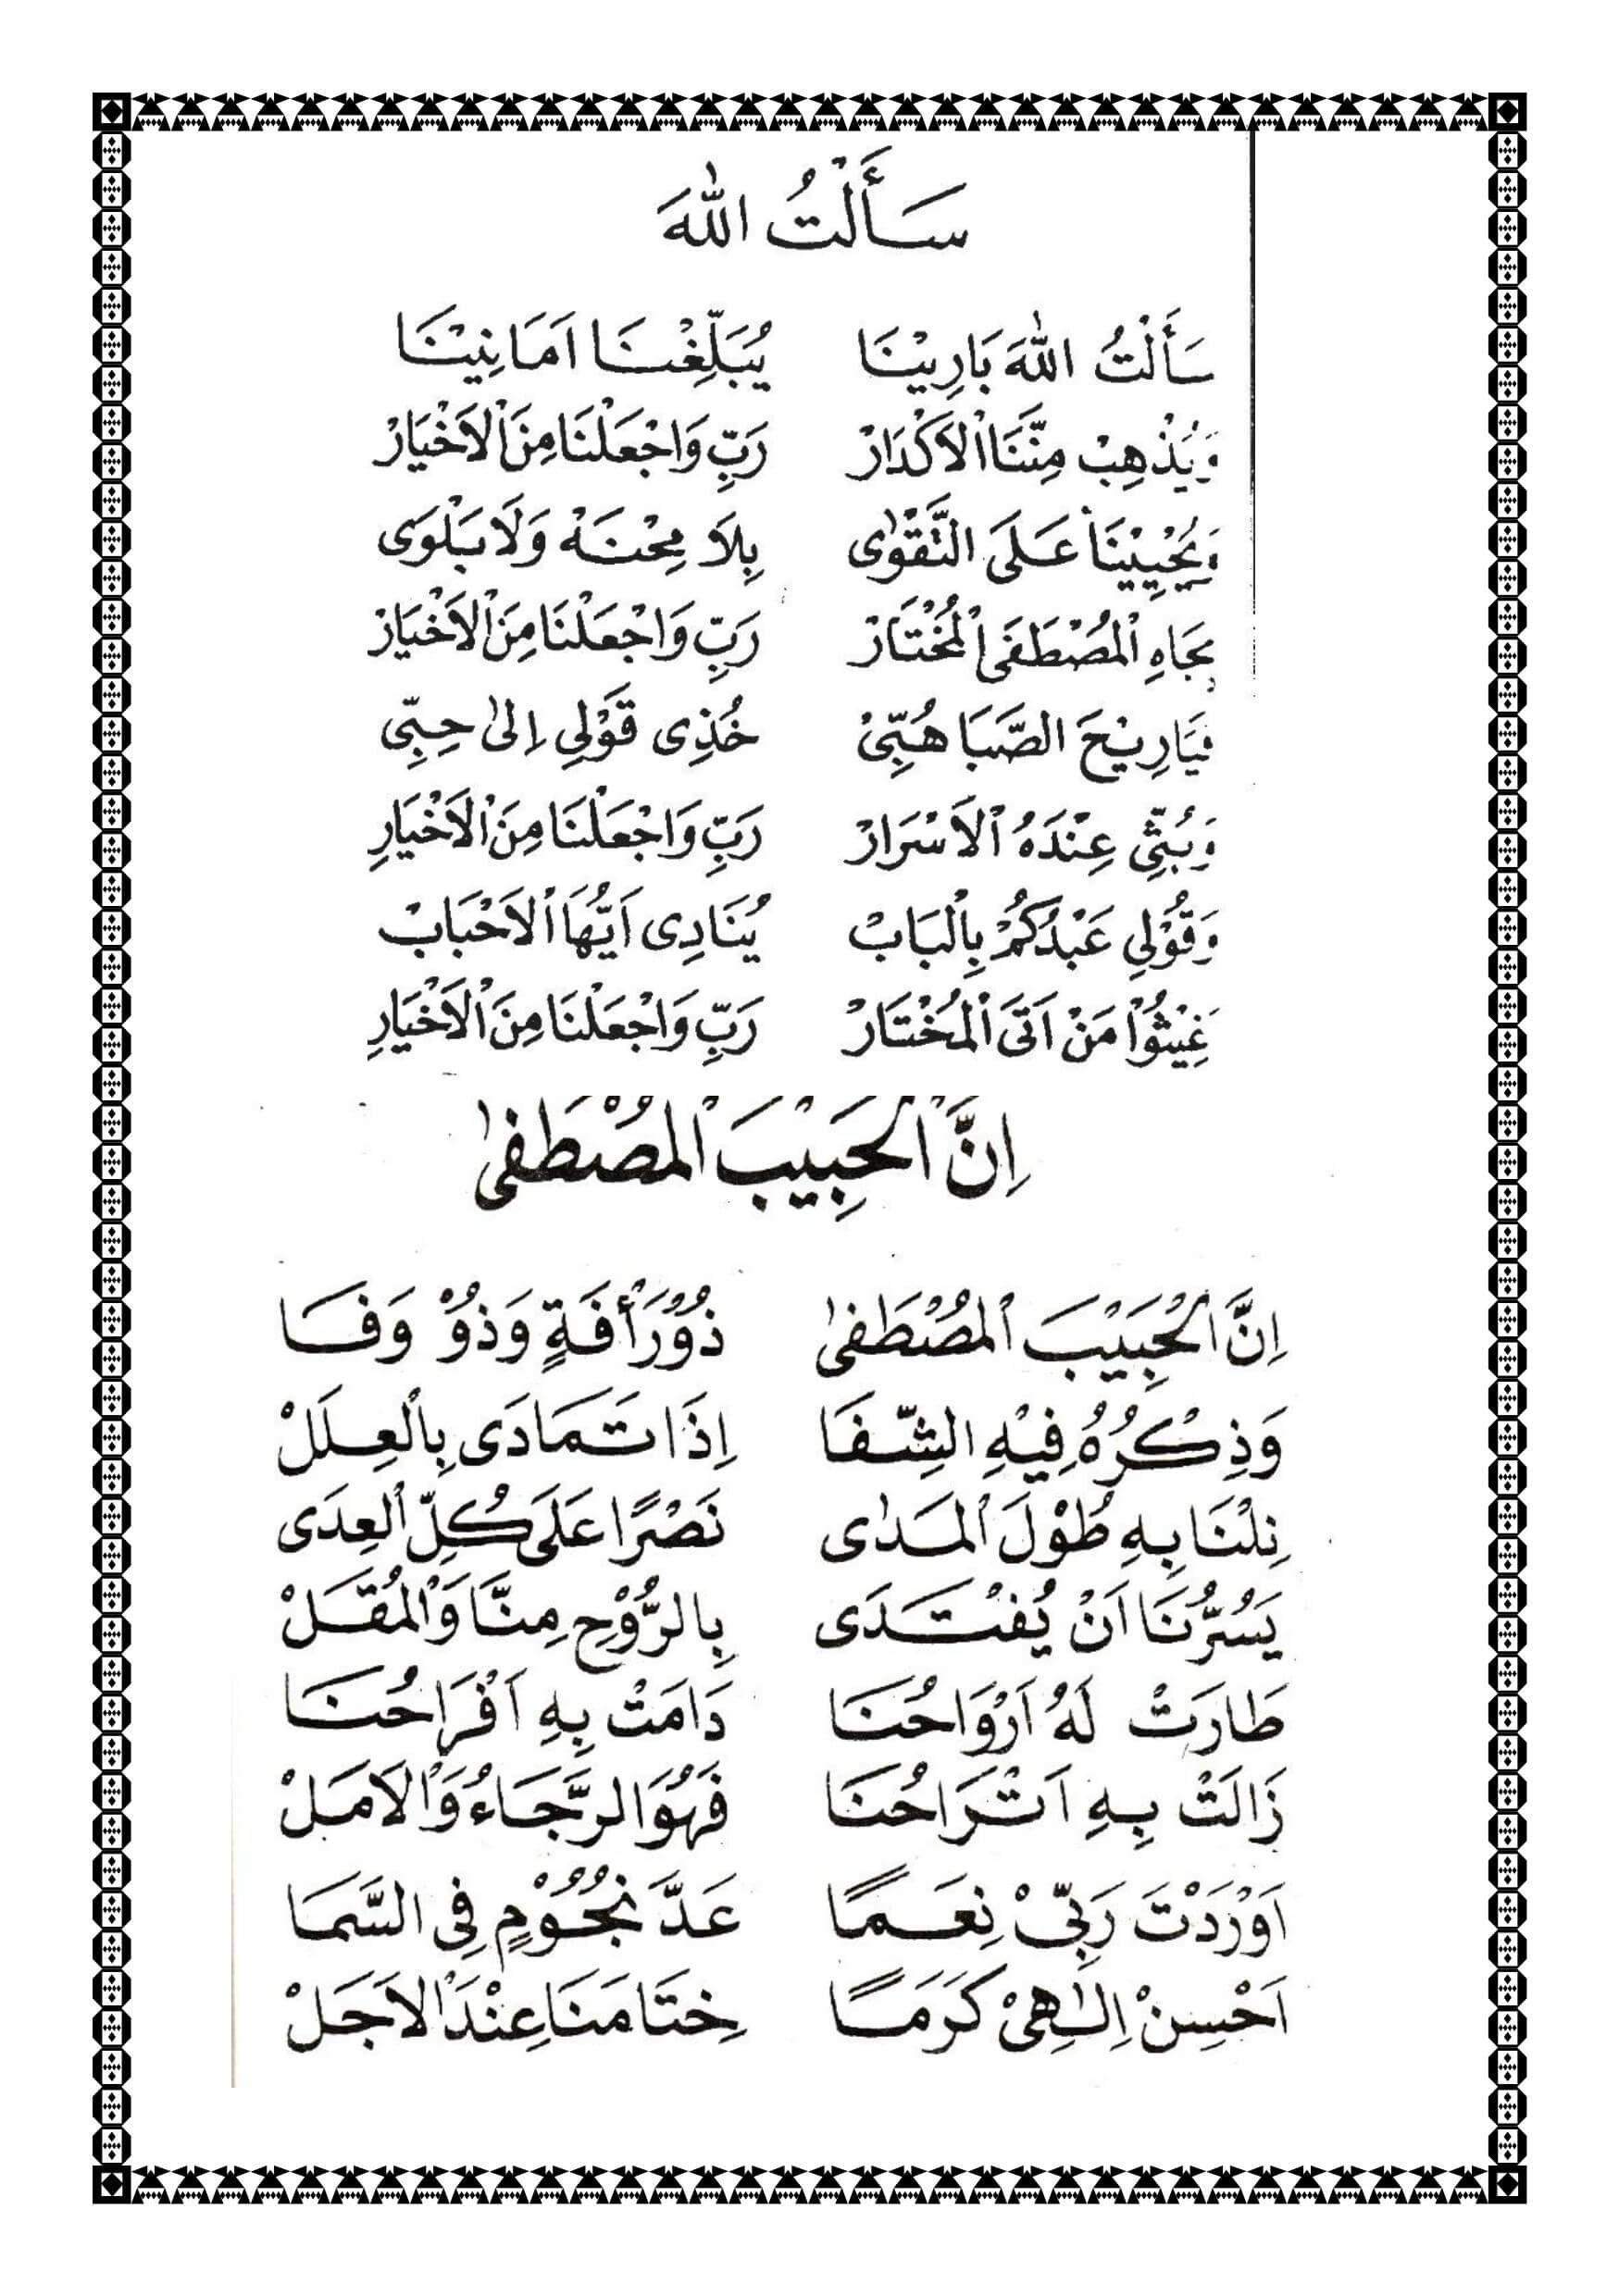 سَأَلْتُ اللهَ
سَأَلْتُ اللهَ بَارِيْنَا يُبَلِّغْنَا اَمَانِيْنَا
وَيُذْهِبْ مِنَّنَااْلاَكْدَارْ رَبِّ وَاجْعَلْنَا مِنَ اْلاَخْيَارْ
وَيُحْيِيْنَا عَلَى التَّقْوٰى بِلاَ مِحْنَهْ وَلَا بَلْوَى
بِجَاهِ اْلمُصْطَفَى اْلمُخْتَارْ رَبِّ وَاجْعَلْنَا مِنَ اْلاَخْيَارْ
فَيَارِيْحَ الصَّبَا هُبِّىْ خُذِى قَوْلِي اِلىٰ حِبِّى
وَبُثِّي عِنْدَهُ اْلاَسْرَارْ رَبِّ وَاجْعَلْنَا مِنَ اْلاَخْيَارِ
وَقُوْلِي عَبْدُكُمْ بِاْلبَابْ يُنَادِى اَيُّهَا اْلاَحْبَابْ
غِيْثُوْا مَنْ اَتَى اْلمُخْتَارْ رَبِّ وَاجْعَلْنَا مِنَ اْلاَخْيَارِ
اِنَّ اْلحَبِيْبَ اْلمُصْطَفىٰ
اِنَّ اْلحَبِيْبَ اْلمُصْطَفىٰ ذُوْرَأْفَةٍ وَذُوْ وَفَا
وَذِكْرُهُ فِيْهِ الشِّفَا اِذَا تَمَادَى بِاْلعِلَلْ
نِلْنَا بِهِ طُوْلَ اْلمَدٰى نَصْرًا عَلَى كُلِّ اْلعِدَى
يَسُرُّنَا اَنْ يُفْتَدَى بِالرُّوْحِ مِنَّا وَاْلمُقَلْ
طَارَتْ لَهُ اَرْوَاحُنَا دَامَتْ بِهِ اَفْرَاحُنَا
زَالَتْ بِهِ اَتْرَاحُنَا فَهُوَ الرَّجَاءُ وَاْلاَمَلْ
اَوْرَدْتَ رَبِّىْ نِعَمًا عَدَّ نُجُوْمٍ فِى السَّمَا
اَحْسِنْ اِلٰهِىْ كَرَمًا خِتَامَنَا عِنْدَ اْلاَجَلْ